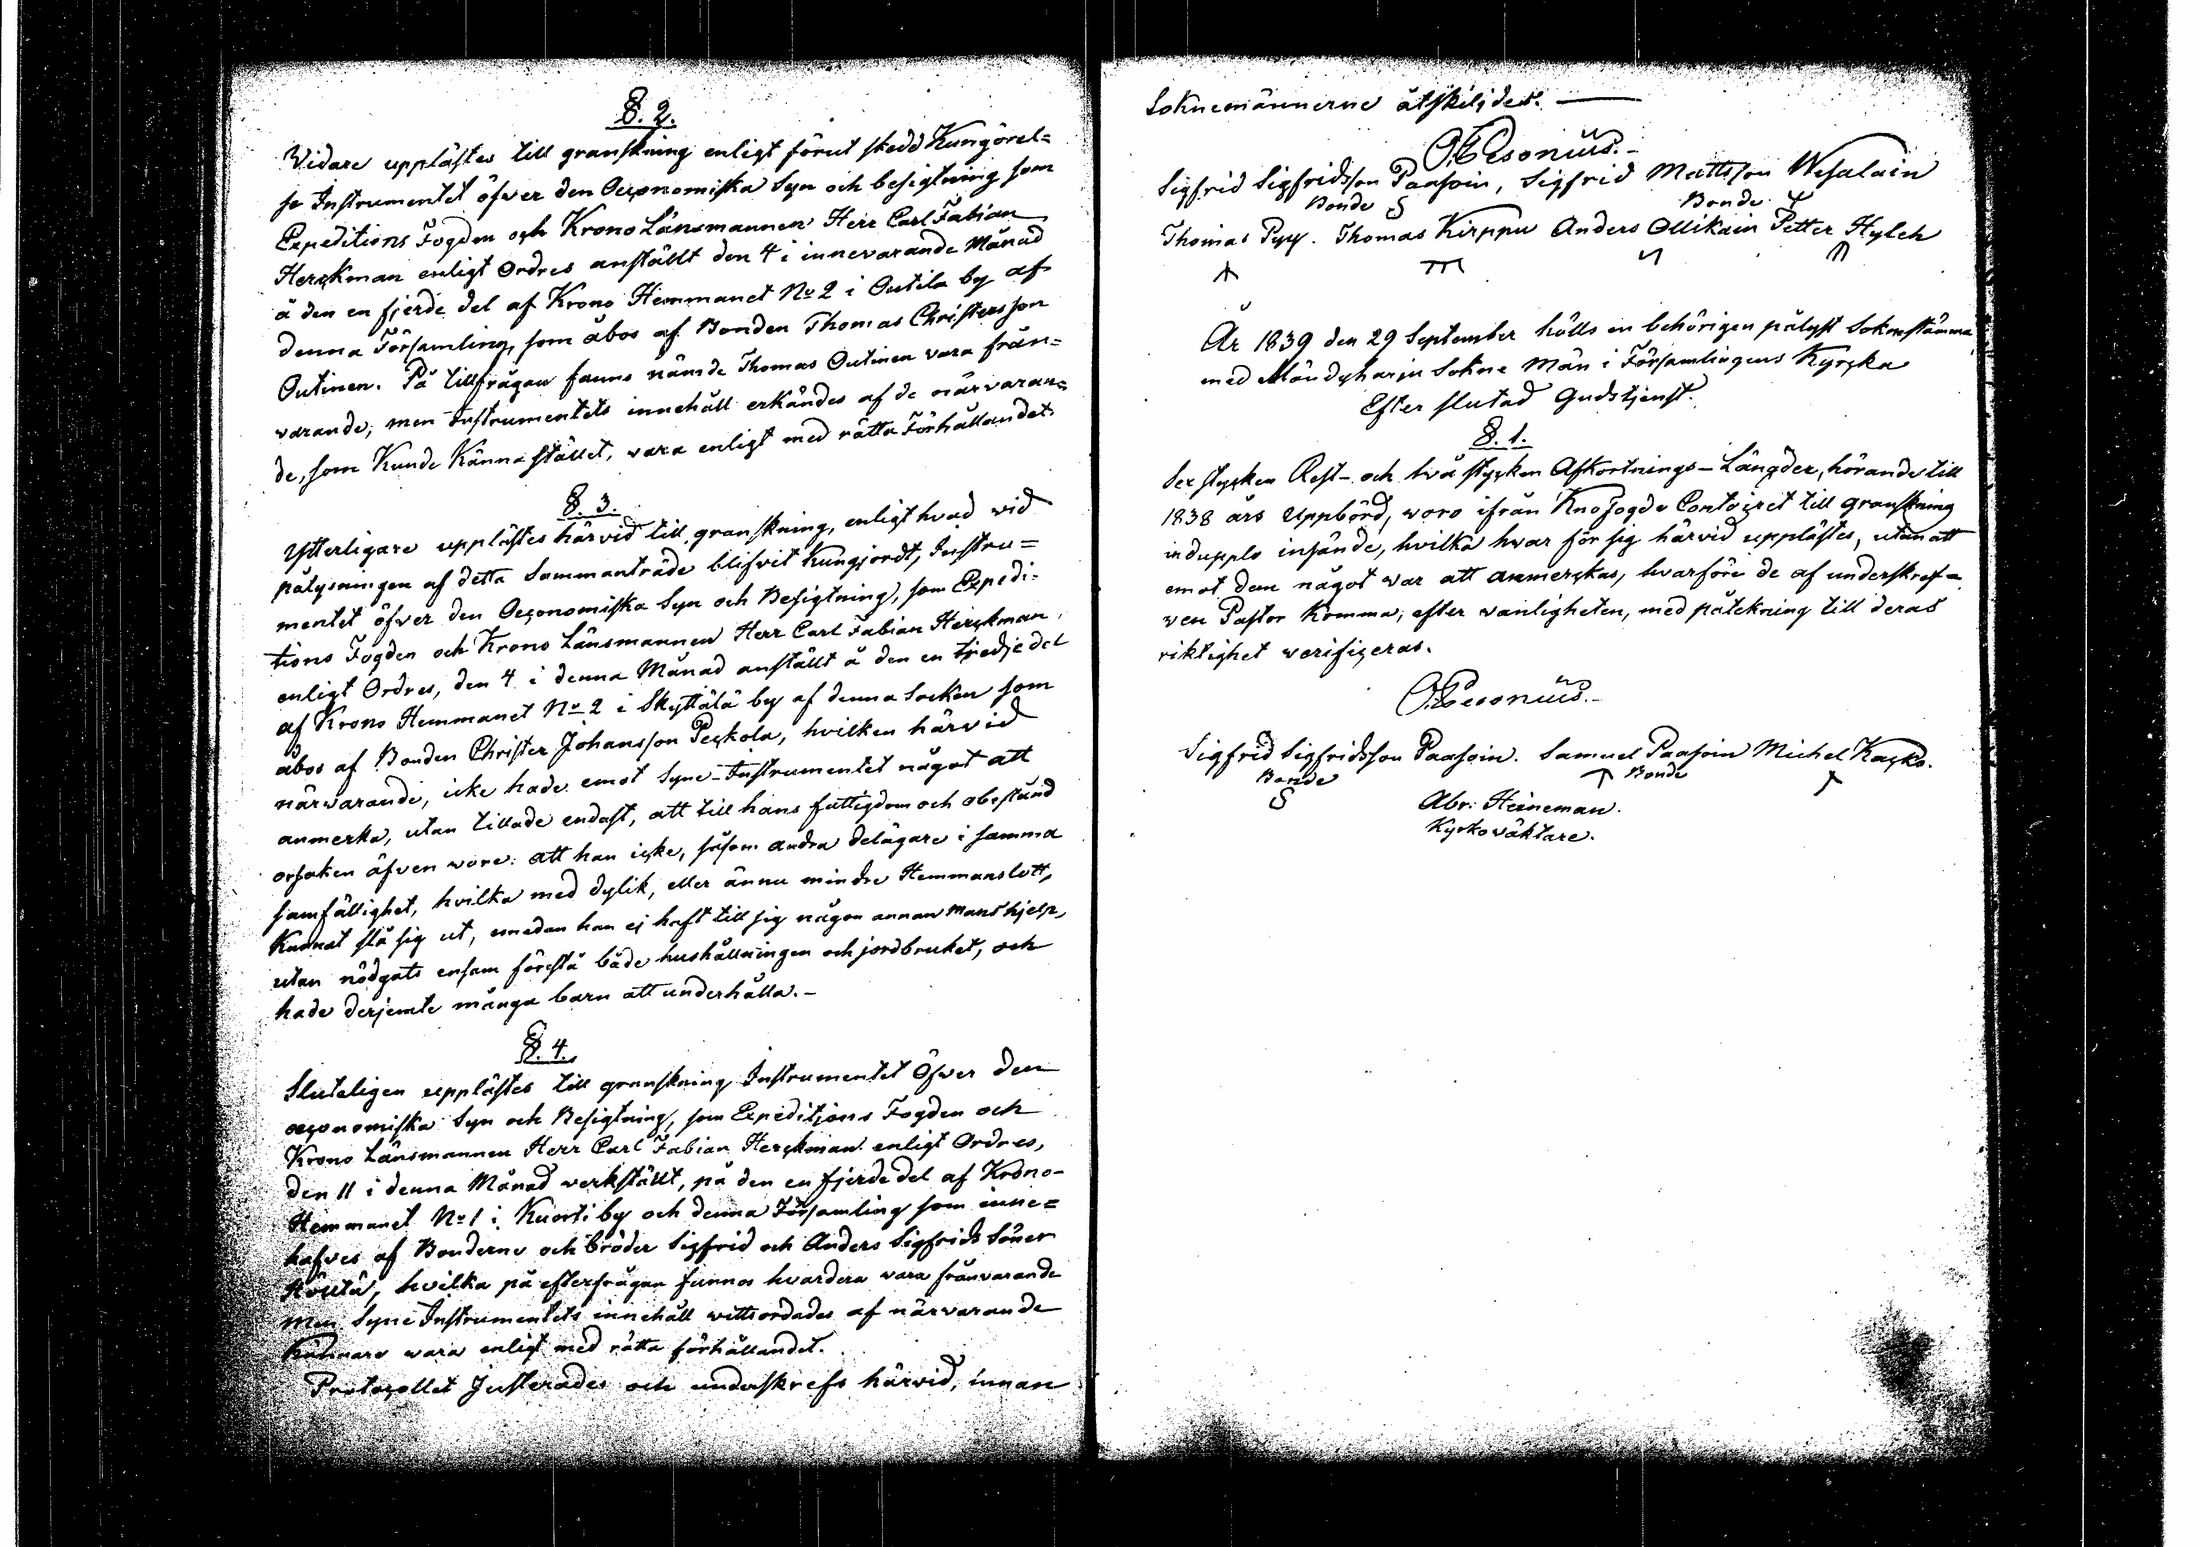 §. 2.
Vidare upplästes till granskning enligt förut skedd Kungörel=
se Instrumentet öfver den Oeconomiska Syn och besigtning som
Expeditions Fogden och Krono Länsmannen Herr Carl Fabian
Herckman enligt Ordres anställt den 4 i innevarande Månad
å den en fjerde del af Krono Hemmanet No 2 i Outila by af
denna Församling, som åbos af Bonden Thomas Christersson
Outinen. På tillfrågan fanns nämde Thomas Outinen vara från=
varande; men Instrumentets innehåll erkändes af de närvaran=
de, som Kunde Känna stället, vara enligt med rätta Förhållandet
§. 3.
Ytterligare upplästes härvid till granskning, enligt hvad vid
pålysningen af detta Sammanträde blifvit Kungjordt, Instru=
mentet öfver den Oeconomiska Syn och Besigtning, som Expedi=
tions Fogden och Krono Länsmannen Herr Carl Fabian Herckman,
enligt Ordres, den 4 i denna Månad anställt å den en tredjedel
af Krono Hemmanet No 2 i Skyttälä by af denna Socken som
åbos af Bonden Christer Johansson Peckola, hvilken härvid
närvarande, icke hade emot Syne-Instrumentet något att
anmerka, utan tillade endast, att till hans fattigdom och obestånd
orsaken äfven wore: att han icke, såsom andra delägare i samma
samfällighet, hvilka med dylik, eller ännu mindre Hemmanslott,
Kunnat slå sig ut, emedan han ej haft till sig någon annan manshjelp,
utan nödgats ensam förestå både hushållningen och jordbruket, och
hade derjemte många barn att underhålla.-
§. 4.
Sluteligen upplästes till granskning Instrumentet Öfver den
oeconomiska Syn och Besigtning, som Expeditions Fogden och
Krono Länsmannen Herr Carl Fabian Herckman enligt Ordres,
den 11 i denna Månad verkställt, på den en fjerdedel af Krono-
Hemmanet No 1 i Kuorti by och denna Församling som inne=
hafves af Bönderne och bröder Sigfrid och Anders Sigfrids Söner
hvilka på efterfrågan funnos hvardera vara frånvarande
men Syne Instrumentets innehåll wittsordades af närvarande
Kännare vara enligt med rätta förhållandet.
Protocollet Justerades och underskrefs härvid, innan
Soknemännerne åtskiljdes. —
O. Pesonius.-
Sigfrid Sigfridsson Paasoin, Sigfrid Mattsson Wesalain
Bonde Bonde
Thomas Pyy. Thomas Kirppu Anders Ollikain Petter Hylch
År 1839 den 29 September hölls en behörigen pålyst Soknestämma
med Mäntyharju Sokne Män i Församlingens Kyrcka
Efter slutad Gudstjenst.
§. 1.
Sex stycken Rest- och två stycken Afkortnings-Längder, hörande till
1838 års Uppbörd, woro ifrån Kno Fogde Contoiret till granskning
in dupplo insände, hvilka hwar för sig härvid upplästes, utan att
emot dem något war att anmerckas, hvarföre de af underskref=
ven Pastor Komma, efter vanligheten, med påtekning till deras
riktighet verificeras.
O. Pesonius.-
Sigfrid Sigfridsson Paasoin. Samuel Paasoin Michel Kacko.
Bonde Bonde
Abr: Heineman.
Kyrkoväktare.